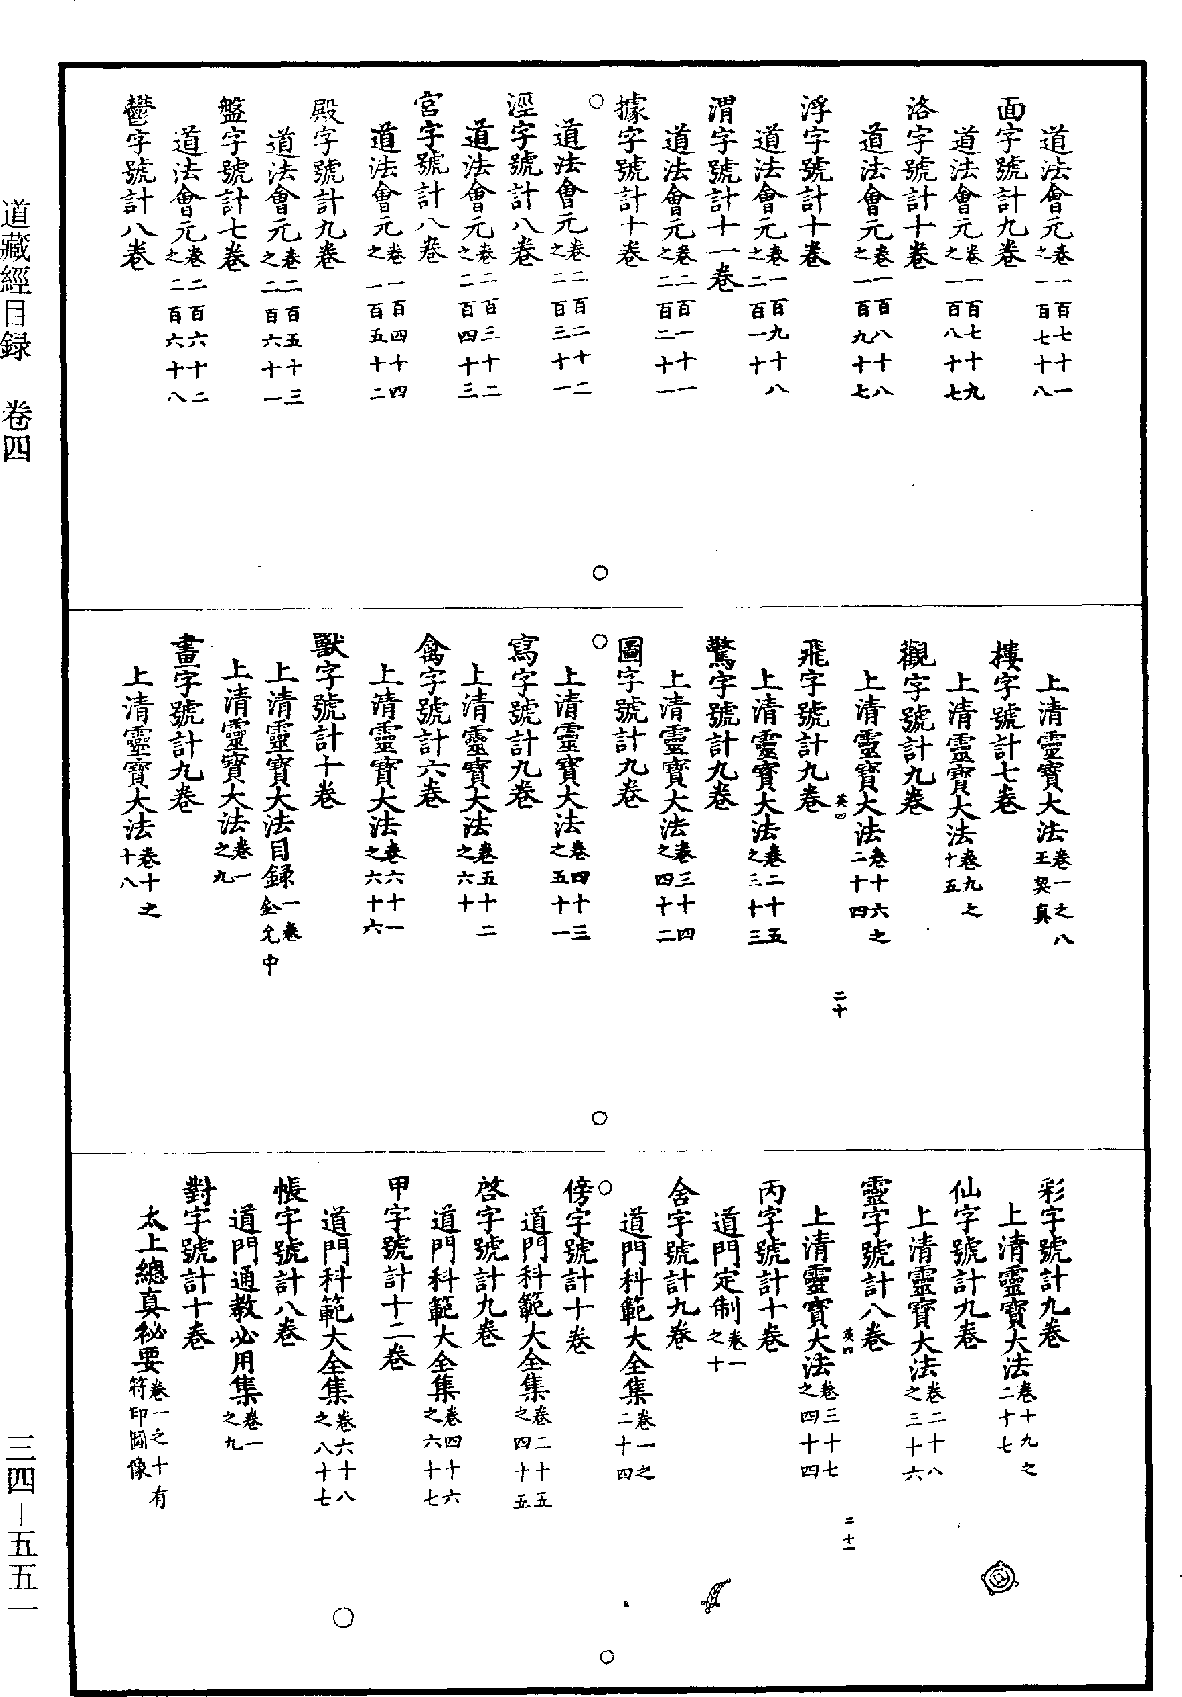 道法會元卷一百七十一之一百七十八
面字號計九卷
道法會元卷一百七十九之一百八十七
洛字號計十卷
道法會元卷一百八十八之一百九十七
浮字號計十卷
道法會元卷一百九十八之二百一十
渭字號計十一卷
道法會元卷二百一十一之二百二十一
據字號計十卷
道法會元卷二百二十二之二百三十一
涇字號計八卷
道法會元卷二百三十二之二百四十三
宮字號計八卷
道法會元卷一百四十四之一百五十二
殿字號計九卷
道法會元卷二百五十三之二百六十一
盤字號計七卷
道法會元卷二百六十二之二百六十八
鬱字號計八卷
上清靈寶大法卷一之八王契真
樓字號計七卷
上清靈寶大法卷九之十五
觀字號計九卷
上清靈寶大法卷十六之二十四
英四 二十
飛字號計九卷
上清靈寶大法卷二十五之三十三
驚字號計九卷
上清靈寶大法卷三十四之四十二
圖字號計九卷
上清靈寶大法卷四十三之五十一
寫字號計九卷
上清靈寶大法卷五十二之六十
禽字號計六卷
上清靈寶大法卷六十一之六十六
獸字號計十卷
上清靈寶大法目錄一卷金允中
上清靈寶大法卷一之九
畫字號計九卷
上清靈寶大法卷十之十八
彩字號計九卷
上清靈寶大法卷十九之二十七
仙字號計九卷
上清靈寶大法卷二十八之三十六
靈字號計八卷
英四 二十一
上清靈寶大法卷三十七之四十四
丙字號計十卷
道門定制卷一之十
舍字號計九卷
道門科範大全集卷一之二十四
傍字號計十卷
道門科範大全集卷二十五之四十五
啓字號計九卷
道門科範大全集卷四十六之六十七
甲字號計十二卷
道門科範大全集卷六十八之八十七
帳字號計八卷
道門通教必用集卷一之九
對字號計十卷
太上總真秘要卷一之十有符印圖像
道藏經目録 卷四
三四—五五一